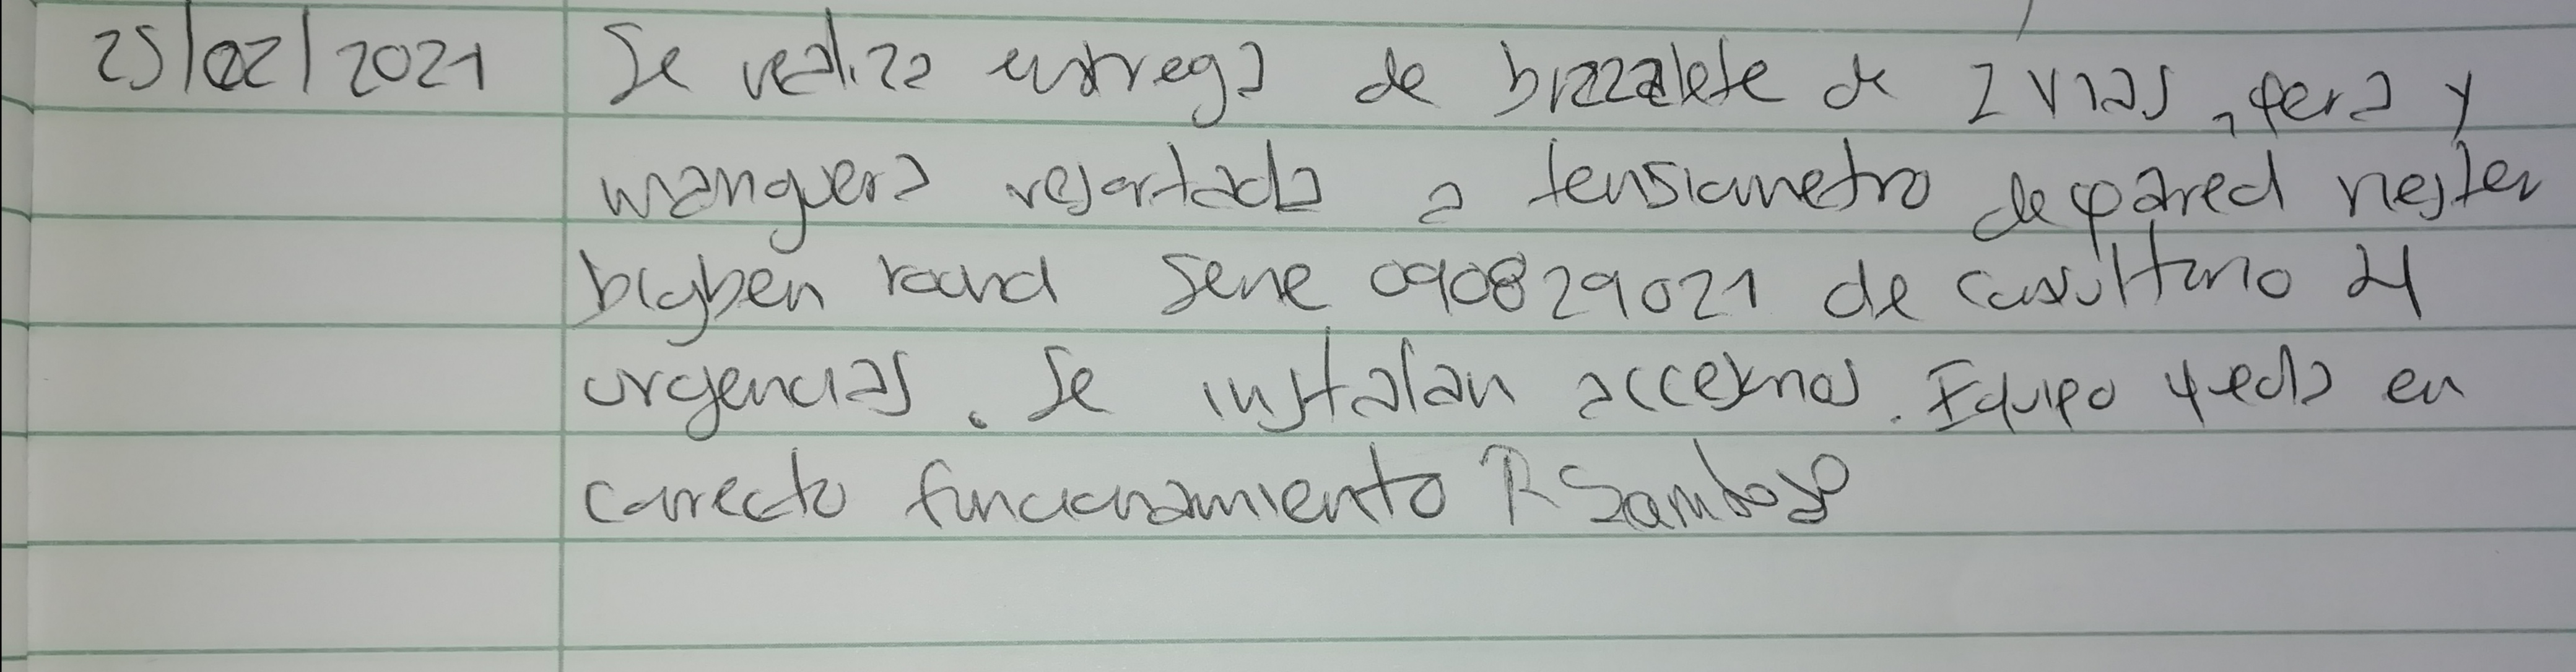 25/02/2021 Se realiza entrega de brazalete de 2 vias, pera y
manguera resortada a tensiometro de pared riester
bigben round Serie 090829021 de consultorio 4
urgencias. Se instalan accesorios. Equipo queda en
correcto funcionamiento R Sandoval